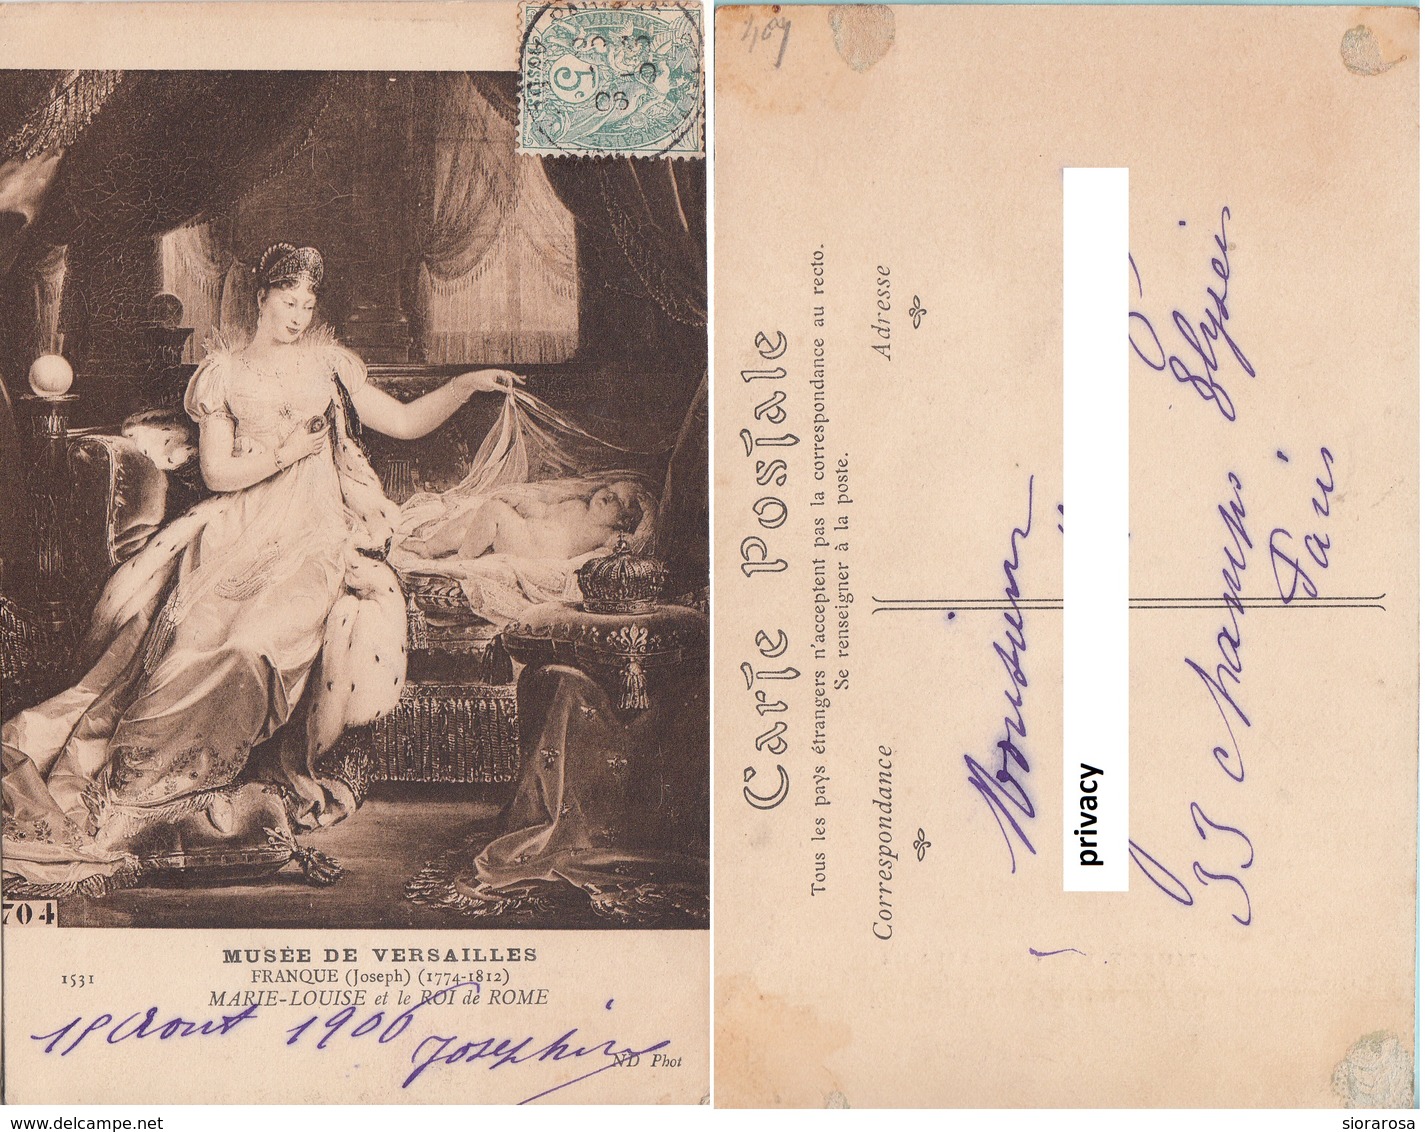 5c
RÉPUBLIQUE FRANÇAISE
06
704
MUSÉE DE VERSAILLES
1531
FRANQUE (Joseph) (1774-1812)
MARIE-LOUISE et le ROI de ROME
15 Aout 1906
Joséphine
ND Phot
409
Carte Postale
Tous les pays étrangers n'acceptent pas la correspondance au recto.
Se renseigner à la poste.
Correspondance
Adresse
Monsieur
privacy
33 Champs Elyseis
Paris
www.delcampe.net
siorarosa